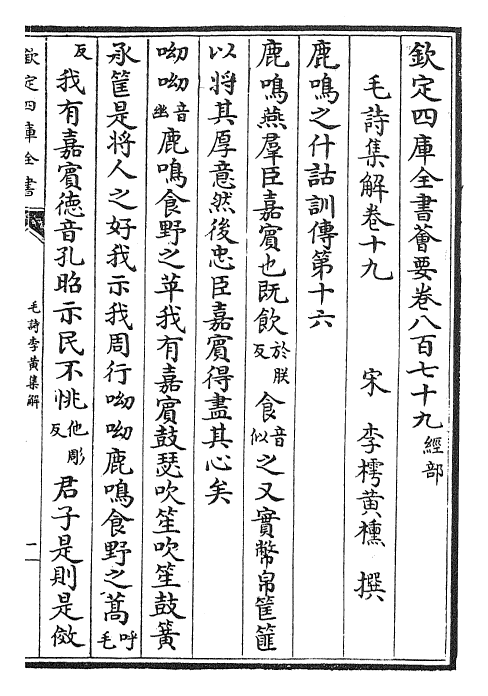 欽定四庫全書薈要卷八百七十九經部
毛詩集解卷十九
宋 李樗黃櫄 撰
鹿鳴之什詁訓傳第十六
鹿鳴燕羣臣嘉賓也既飲於朕反食音似之又實幣帛筐篚
以將其厚意然後忠臣嘉賓得盡其心矣
呦呦音幽鹿鳴食野之苹我有嘉賓鼓瑟吹笙吹笙鼓簧
承筐是將人之好我示我周行呦呦鹿鳴食野之蒿呼毛
反我有嘉賓德音孔昭示民不恌他彫反君子是則是傚
欽定四庫全書
毛詩李黃集解
一